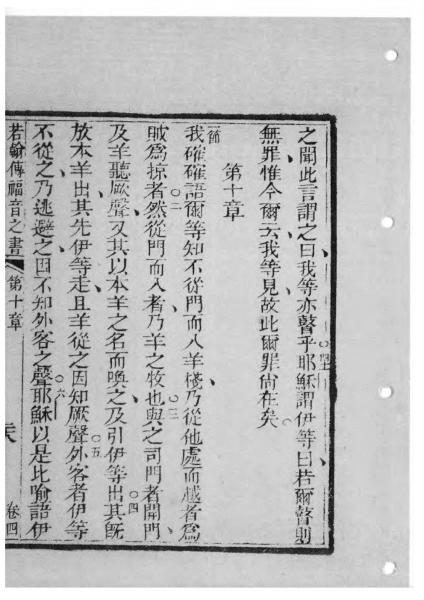 之聞此言謂之曰我等亦瞽乎耶穌謂伊等曰若爾瞽則
無罪惟今爾云我等見故此爾罪尚在矣
第十章
我確確語爾等知不從門而入羊棧乃從他處而越者爲
賊爲掠者然從門而入者乃羊之牧也與之司門者開門
及羊聽厥聲又其以本羊之名而喚之及引伊等出其既
放本羊出其先伊等走且羊從之因知厥聲外客者伊等
不從之乃逃避之因不知外客之聲耶穌以是比喻語伊
若翰傳福音之書 第十章 卷四